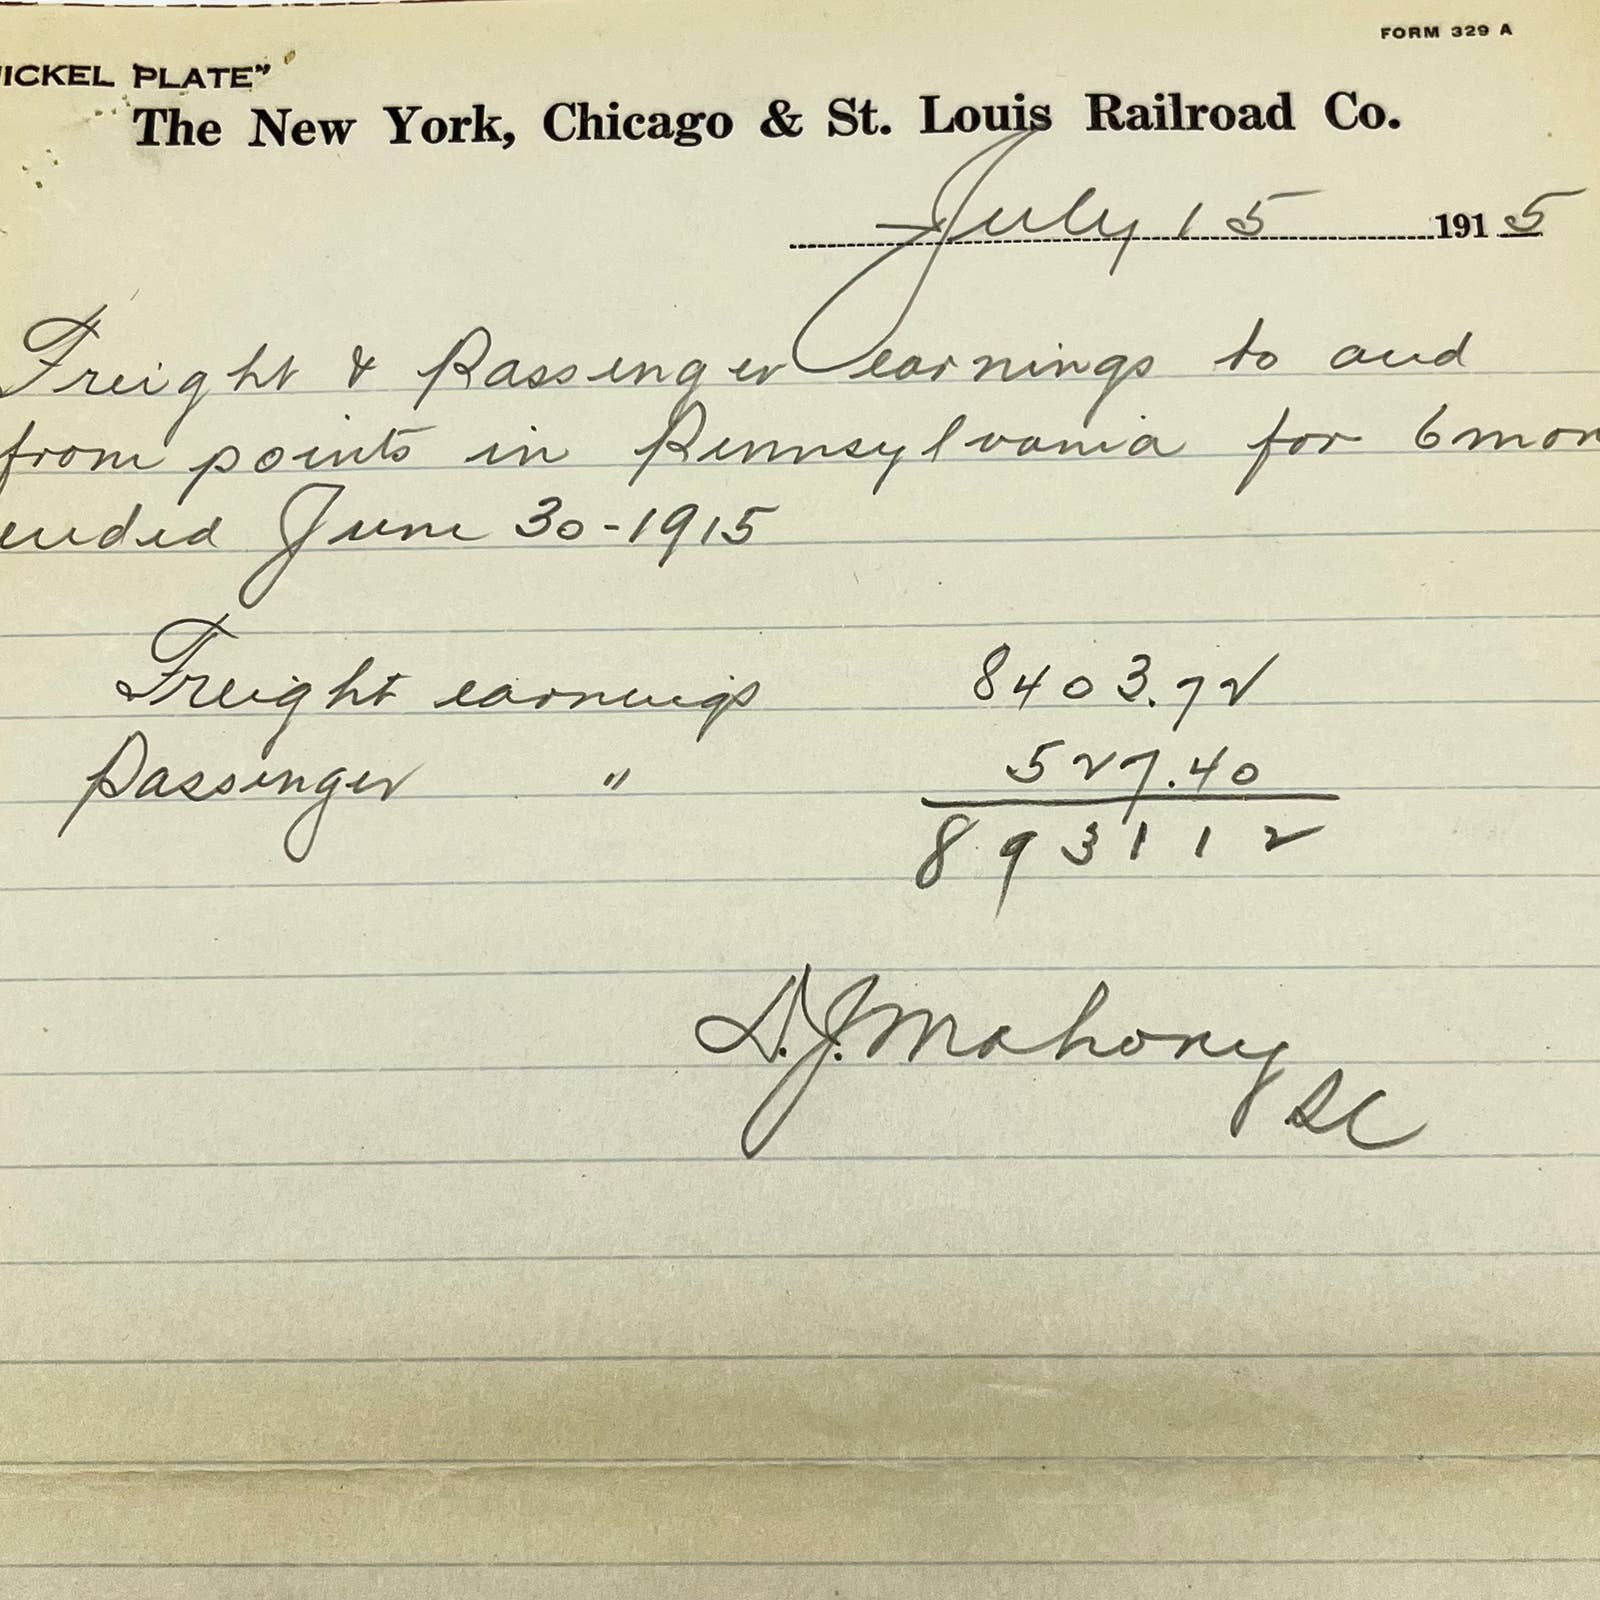 FORM 329 A
ICKEL PLATE"
The New York, Chicago & St. Louis Railroad Co.
July 15 1915
Freight & Passenger earnings to and
from points in Pennsylvania for 6 mon
ended June 30-1915
Freight earnings 8403.72
Passenger " 527.40
893112
D.J. Mahony